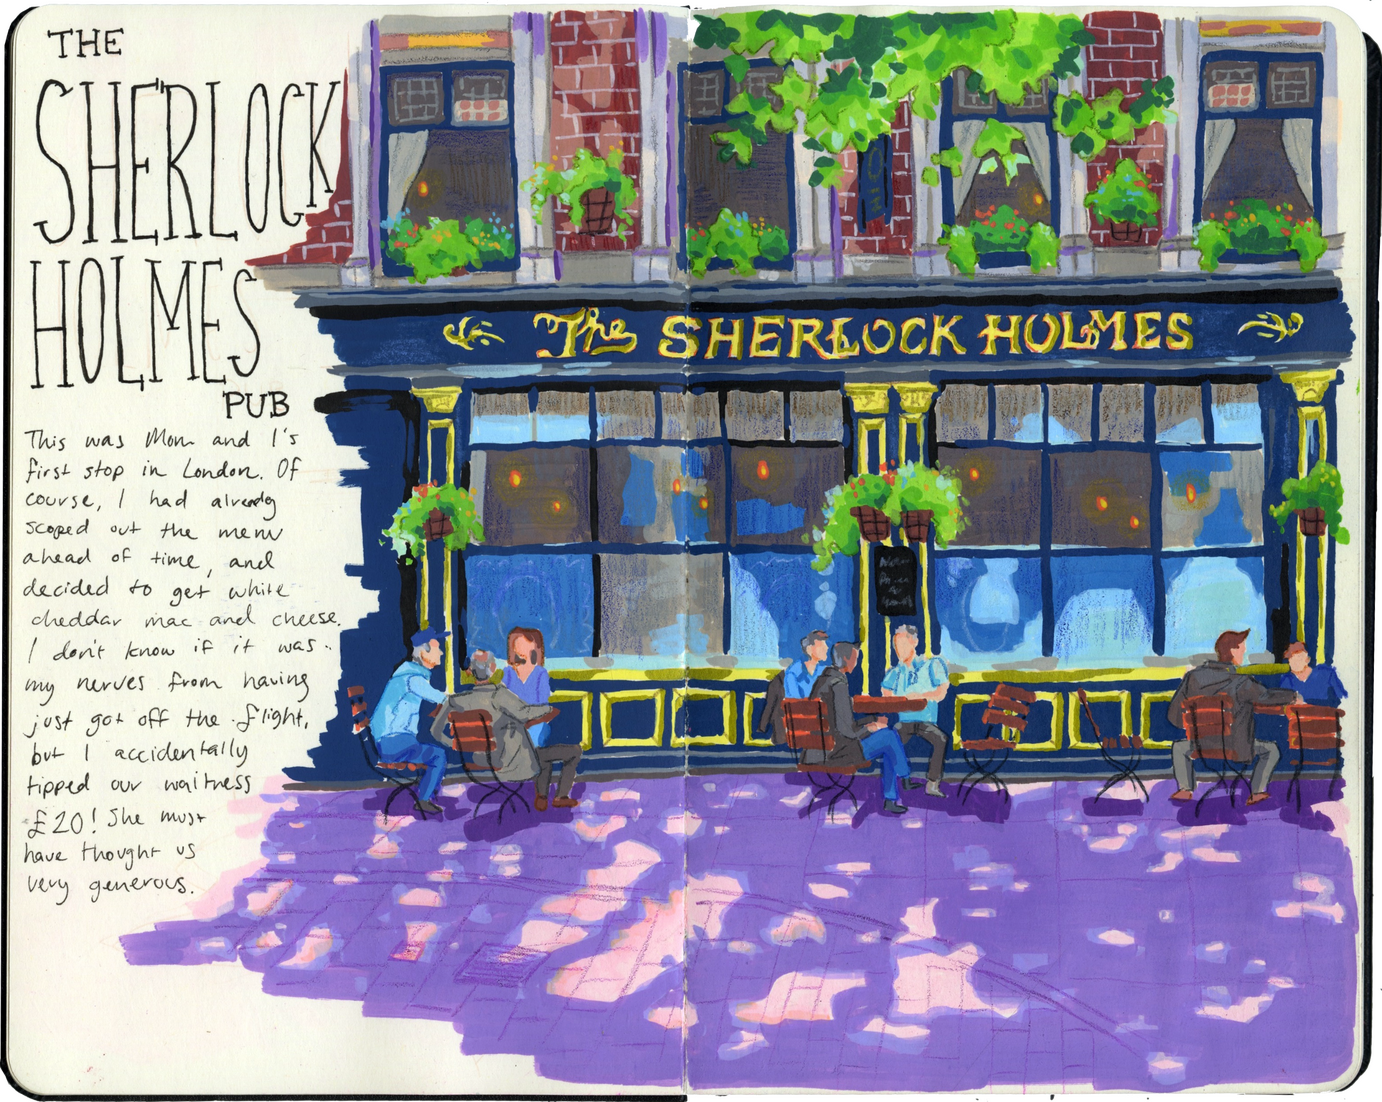 THE
SHERLOCK
HOLMES
PUB
This was Mom and I's
first stop in London. Of
course, I had already
scoped out the menu
ahead of time, and
decided to get white
cheddar mac and cheese.
I don't know if it was
my nerves from having
just got off the flight,
but I accidentally
tipped our waitress
£20! She must
have thought us
very generous.
The SHERLOCK HOLMES